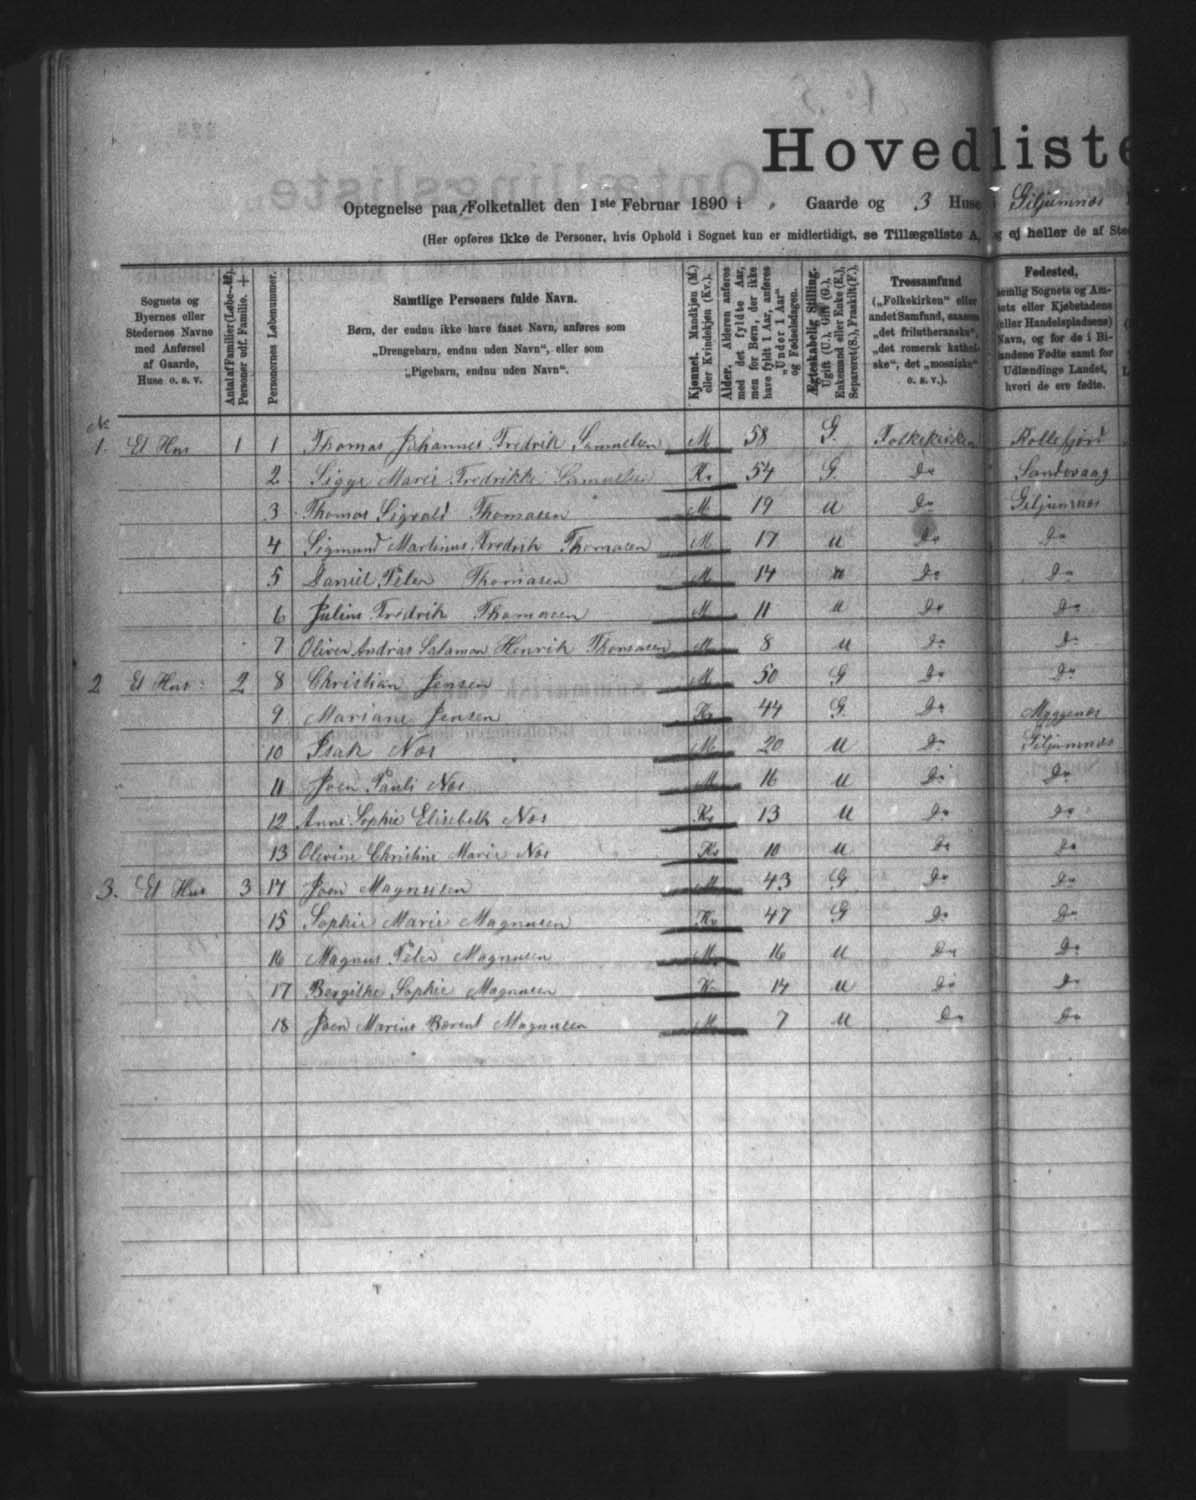 Hovedliste
Optegnelse paa Folketallet den 1ste Februar 1890 i " Gaarde og 3 Huse i Giljumnæs
(Her opføres ikke de Personer, hvis Ophold i Sognet kun er midlertidigt, se Tillægsliste A, og ej heller de af
Sognets og Byernes eller Stedernes Navne med Anførsel af Gaarde, Huse o. s. v.
Antal af Familier (Løbe-№). Personer udf. Familie. +
Personernes Løbenummer.
Samtlige Personers fulde Navn.
Børn, der endnu ikke have faaet Navn, anføres som
„Drengebarn, endnu uden Navn“, eller som
„Pigebarn, endnu uden Navn“.
Kjønnet. Mandkjøn (M.) eller Kvindekjøn (Kv.).
Alder. Alderen anføres med det fyldte Aar, men for Børn, der ikke have fyldt 1 Aar, anføres „Under 1 Aar“ og Fødselsdagen.
Ægteskabelig Stilling. Ugift (U.), Gift (G.), Enkemand eller Enke (E.), Separeret (S.), Fraskilt (F.).
Trossamfund („Folkekirken“ eller andet Samfund, saasom „det frilutheranske“, „det romersk katholske“, det „mosaiske“ o. s. v.).
Fødested, nemlig Sognets og Amtets eller Kjøbstadens (eller Handelspladsens) Navn, og for de i Bilandene Fødte samt for Udlændinge Landet, hvori de ere fødte.
№
1. Et Hus 1 1 Thomas Johannes Fredrik Samuelsen M 58 G. Folkekirken Kollefjord
2 Sigga Marie Fredrikke Samuelsen Kv 54 G. Do Sandevaag
3 Thomas Sigvald Thomasen M 19 U Do Giljumnæs
4 Sigmund Martinus Fredrik Thomasen M 17 U Do Do
5 Daniel Peter Thomasen M 14 U Do Do
6 Julius Fredrik Thomasen M 11 U Do Do
7 Oliver Andras Salamon Henrik Thomasen M 8 U Do Do
2 Et Hus: 2 8 Christian Jensen M 50 G Do Do
9 Mariane Jensen Kv 44 G. Do Myggenæs
10 Isak Nos M 20 U Do Giljumnæs
11 Joen Pauli Nos M 16 U Do Do
12 Anne Sophie Elisebeth Nos Kv 13 U Do Do
13 Olevine Christine Marie Nos Kv 10 U Do Do
3. Et Hus 3 14 Joen Magnusen M 43 G Do Do
15 Sophie Marie Magnusen Kv 47 G Do Do
16 Magnus Peter Magnusen M 16 U Do Do
17 Bergithe Sophie Magnusen Kv 14 U Do Do
18 Joen Marius Berent Magnusen M 7 U Do Do